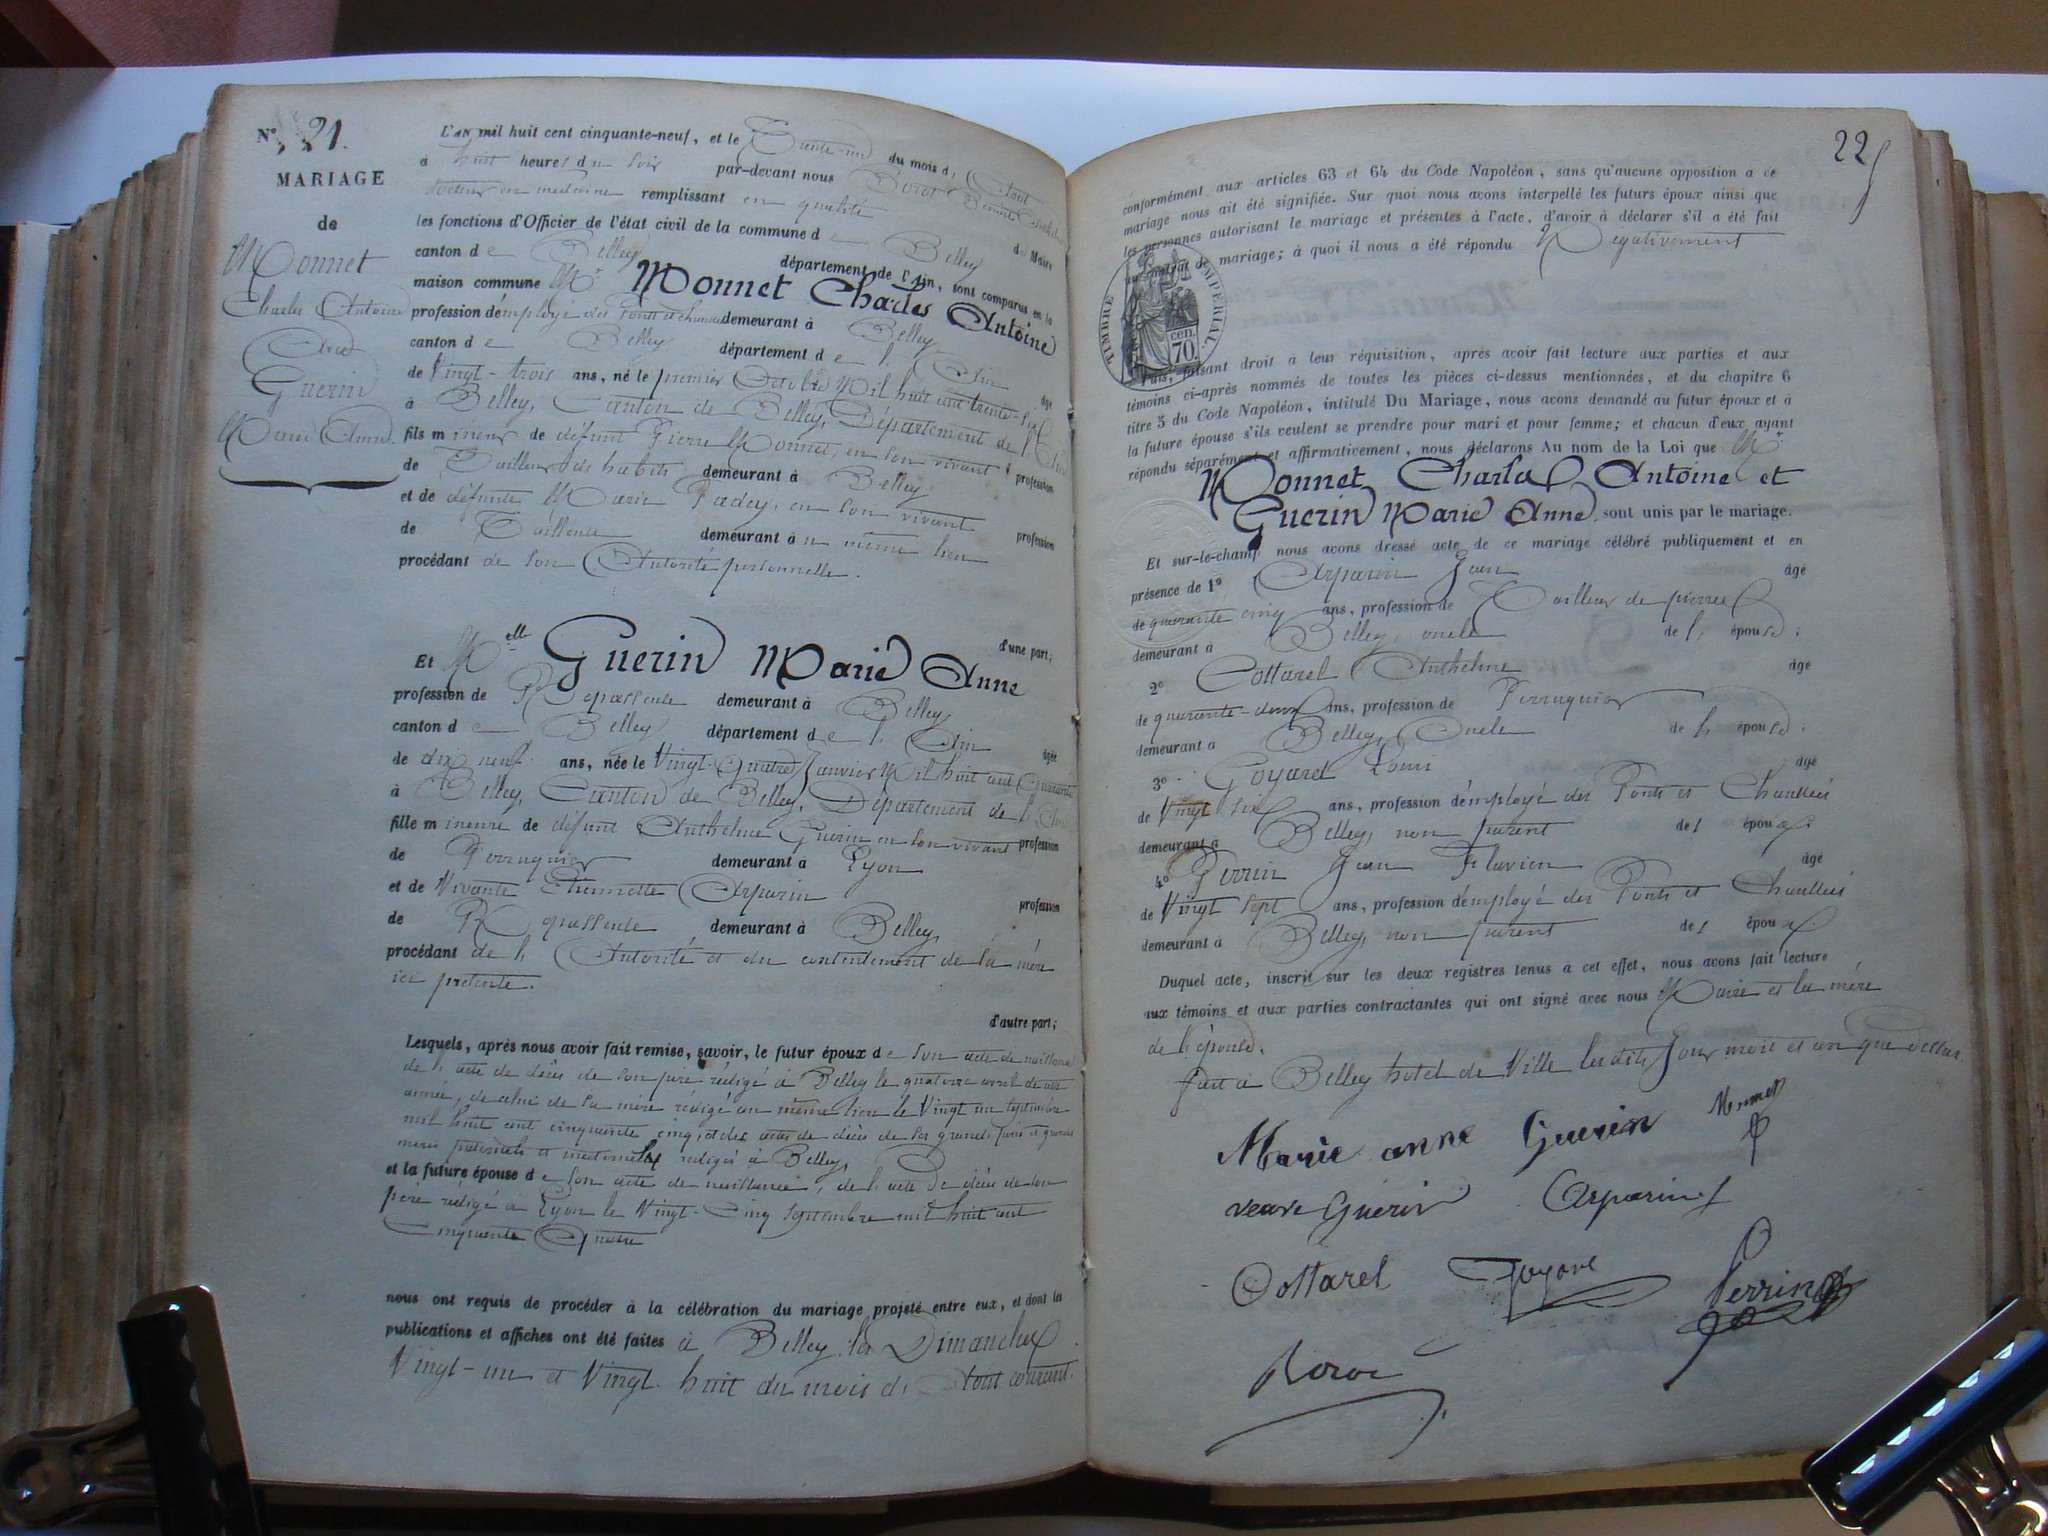 N° 21.
MARIAGE
de
Monnet
Charles Antoine
And
Guerin
Marie Anne.
L'an mil huit cent cinquante-neuf, et le Trente-un du mois d'Aout
à huit heures du soir par-devant nous
docteur en medecine remplissant en qualité de Maire
les fonctions d'Officier de l'état civil de la commune de Belley
canton de Belley département de l'Ain, sont comparus en la
maison commune Mr Monnet Charles Antoine
profession d'employé des Ponts et chaussées demeurant à Belley
canton de Belley département de l'Ain âgé
de Vingt-trois ans, né le premier Octobre Mil huit cent trente-six
à Belley, Canton de Belley, Département de l'Ain
fils mineur de défunt Pierre Monnet, en son vivant profession
de Tailleur de habits demeurant à Belley
et de défunte Marie Padey, en son vivant profession
de Tailleuse demeurant à u même lieu
procédant de son Autorité personnelle.
d'une part;
Et Melle Guerin Marie Anne
profession de Repasseuse demeurant à Belley
canton de Belley département de l'Ain âgée
de dix neuf ans, née le Vingt-Quatre Janvier Mil huit cent Quarante
à Belley, Canton de Belley, Département de l'Ain
fille mineure de défunt Anthelme Guerin en son vivant profession
de Perruquier demeurant à Lyon
et de Vivante Etiennette Arparin profession
de Repasseuse demeurant à Belley,
procédant de l'Autorité et du consentement de sa mère
ici présente.
d'autre part;
Lesquels, après nous avoir fait remise, savoir, le futur époux de son acte de naissance
de l'acte de décès de son père rédigé à Belley le quatorze avril de cette
année, de celui de sa mère rédigé au même lieu le Vingt un septembre
mil huit cent cinquante cinq, et des actes de décès de ses grands pères et grands
mères paternels et maternels rédigés à Belley,
et la future épouse de son acte de naissance, de l'acte de décès de son
père rédigé à Lyon le Vingt-Cinq septembre mil huit cent
Cinquante Quatre
nous ont requis de procéder à la célébration du mariage projeté entre eux, et dont les
publications et affiches ont été faites à Belley les Dimanches
Vingt-un et Vingt-huit du mois d'Aout courant.
22
conformément aux articles 63 et 64 du Code Napoléon, sans qu'aucune opposition à ce
mariage nous ait été signifiée. Sur quoi nous avons interpellé les futurs époux ainsi que
les personnes autorisant le mariage et présentes à l'acte, d'avoir à déclarer s'il a été fait
au contrat de mariage; à quoi il nous a été répondu Négativement
TIMBRE IMPÉRIAL.
70 cen.
Puis, faisant droit à leur réquisition, après avoir fait lecture aux parties et aux
témoins ci-après nommés de toutes les pièces ci-dessus mentionnées, et du chapitre 6
titre 5 du Code Napoléon, intitulé Du Mariage, nous avons demandé au futur époux et à
la future épouse s'ils veulent se prendre pour mari et pour femme; et chacun d'eux ayant
répondu séparément et affirmativement, nous déclarons Au nom de la Loi que Mr
Monnet Charles Antoine et
Guerin Marie Anne sont unis par le mariage.
Et sur-le-champ nous avons dressé acte de ce mariage célébré publiquement et en
présence de 1° Arparin Jean âgé
de quarante cinq ans, profession de Tailleur de pierres
demeurant à Belley, oncle de l'épouse;
2° Cottarel Anthelme âgé
de quarante-deux ans, profession de Perruquier
demeurant à Belley, Oncle de l'épouse;
3° Goyard Louis âgé
de Vingt six ans, profession d'employé des Ponts et Chaussées
demeurant à Belley, non parent des époux;
4° Perrin Jean Flavien âgé
de Vingt sept ans, profession d'employé des Ponts et Chaussées
demeurant à Belley, non parent des époux.
Duquel acte, inscrit sur les deux registres tenus à cet effet, nous avons fait lecture
aux témoins et aux parties contractantes qui ont signé avec nous Maire et la mère
de l'épouse.
fait à Belley hotel de Ville lesdits Jour mois et an que dessus.
Marie anne Guerin Monnet
veuve Guérin Arparin
Cottarel Goyard Perrin